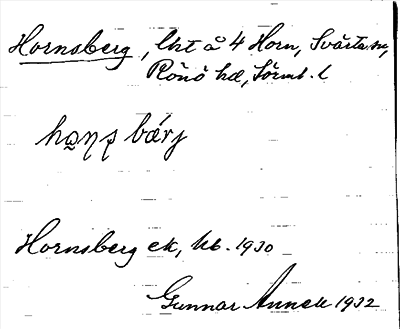 Hornsberg, lht å 4 Horn, Svärta sn,
Rönö hd, Sörml. l
ho̤ŋʂ bárj
Hornsberg ek, kb. 1930
Gunnar Annell 1932